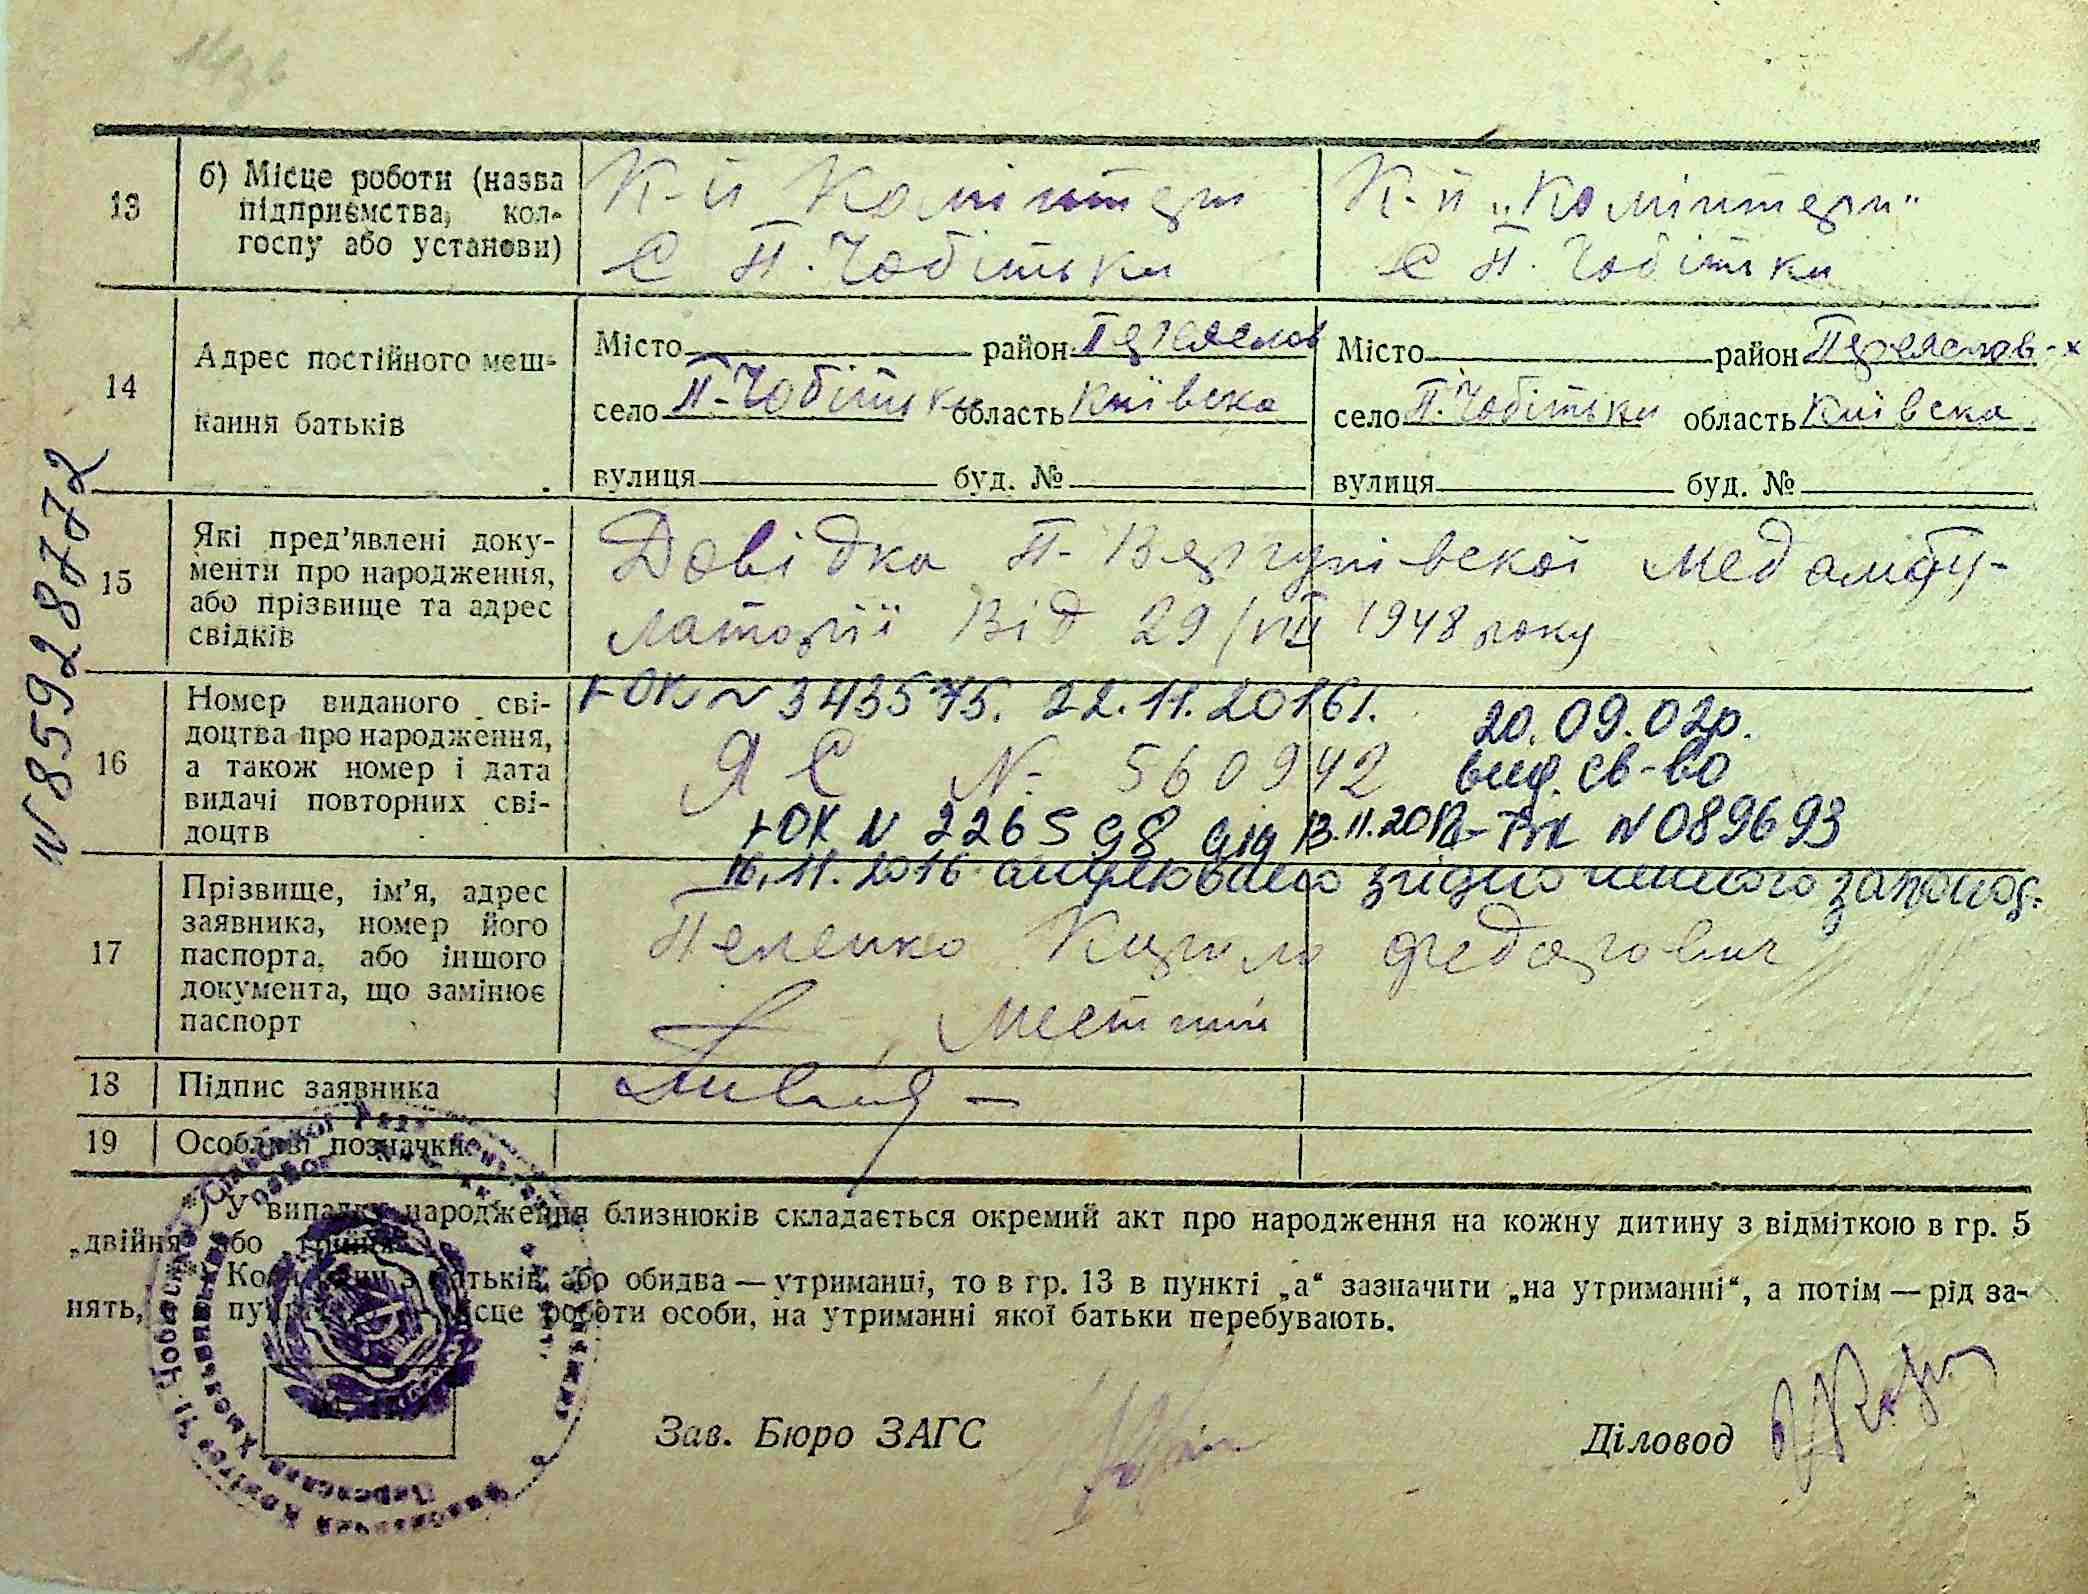 13 б) Місце роботи (назва підприємства, кол-госпу або установи)
К-п Комінтерн
с П. Чобітьки
К-п „Комінтерн"
с П. Чобітьки
14 Адрес постійного меш-
кання батьків
Місто район Переяслов
село П-Чобітьки область Київська
вулиця буд. №
Місто район Переяслав-х
село П. Чобітьки область Київська
вулиця буд. №
15 Які пред'явлені доку-
менти про народження,
або прізвище та адрес
свідків
Довідка П-Вергунівскої медамбу-
латорії Від 29/VII 1948 року
№ 85928772
16 Номер виданого сві-
доцтва про народження,
а також номер і дата
видачі повторних сві-
доцтв
І-ОК № 343575. 22.11.2016
20.09.02р.
ЯС № 560942
вид. св-во
І-ОК № 226598 від 13.11.2012 І-БК № 089693
16.11.2016 анульовано згідно чинного законод.
17 Прізвище, ім'я, адрес
заявника, номер його
паспорта, або іншого
документа, що замінює
паспорт
Кирило Федорович
18 Підпис заявника
19 Особливі позначки
*) У випадку народження близнюків складається окремий акт про народження на кожну дитину з відміткою в гр. 5
„двійня" або „трійня".
Коли один з батьків або обидва — утриманці, то в гр. 13 в пункті „а" зазначити „на утриманні", а потім — рід за-
нять, пункті місце роботи особи, на утриманні якої батьки перебувають.
Зав. Бюро ЗАГС
Діловод